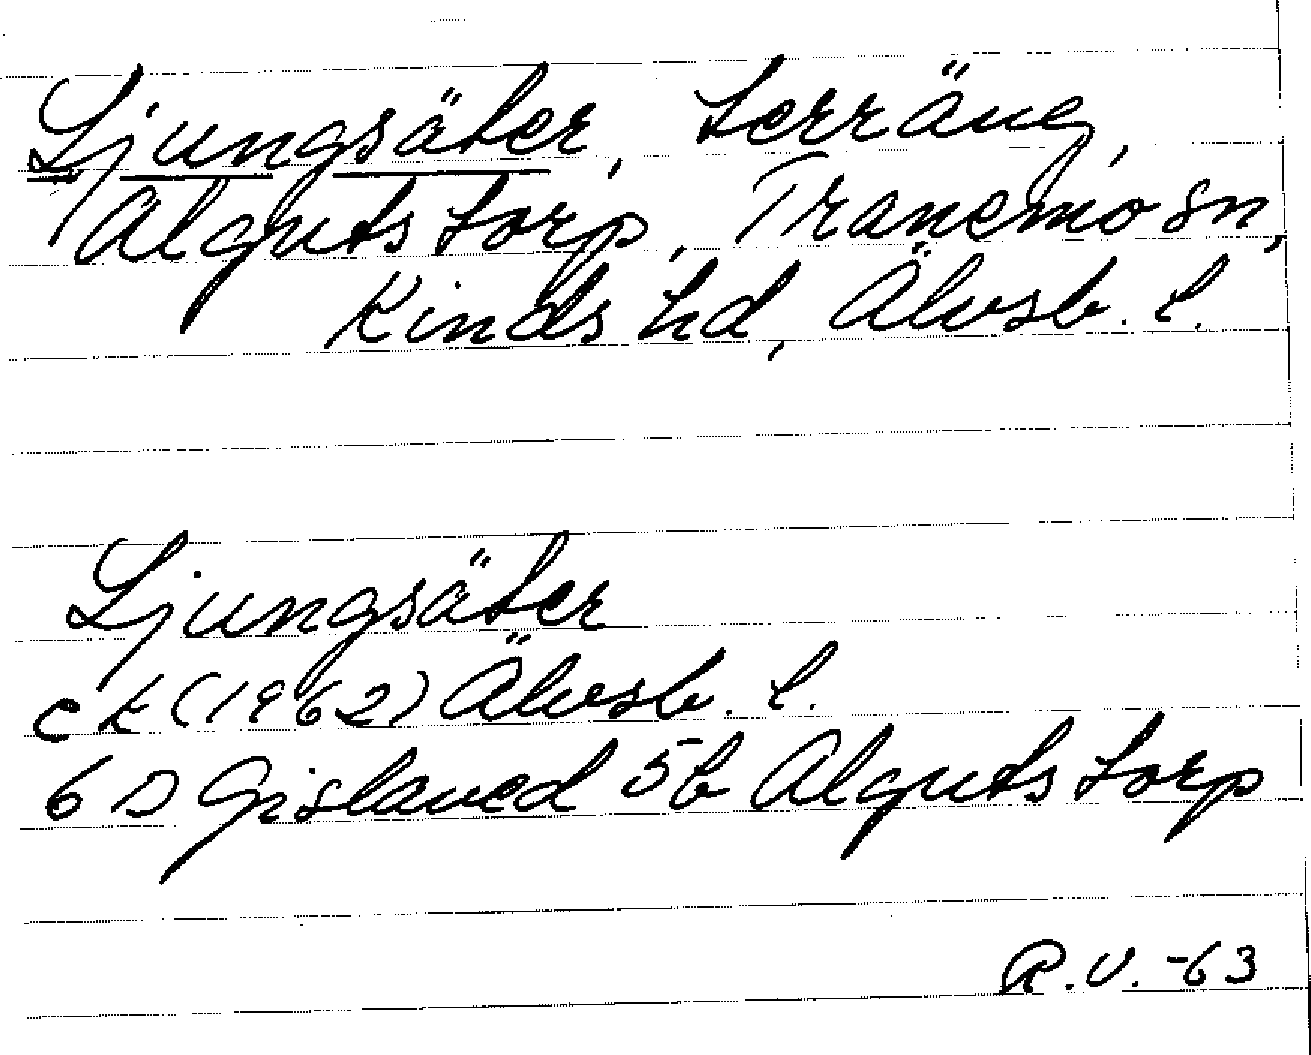 Ljungsäter, terräng,
Algutstorp, Tranemo sn,
Kinds hd, Älvsb. l.
Ljungsäter
ek (1962) Älvsb. l.
6 D Gislaved 5b Algutstorp
R.V. -63